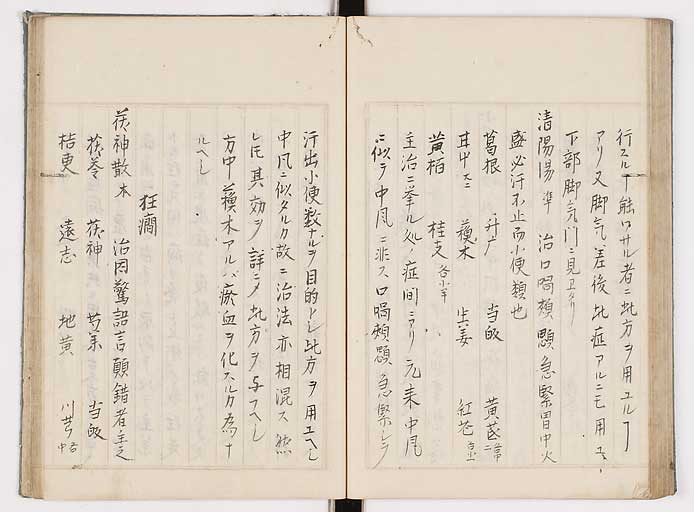 行スルヿ能ワサル者ニ此方ヲ用ユルヿ
アリ又脚気差後此症アルニモ用ユ
下部脚気門ニ見ヱタリ
清陽湯 準 治口喎頰顋急緊胃中火
盛必汗不止而小便類也
葛根 升广 当皈 黄芪
甘中 蘓木 生姜 紅花
黄栢 桂支 各小半
主治ニ挙ル処ノ症間ニアリ元来中風
ニ似テ中風ニ非ス口喎頰顋急緊シテ
汗出小便数ナルヲ目的トし此方ヲ用ユへし
中風ニ似タルカ故ニ治法亦相混ス然
レ𪜈其効ヲ詳ニメ此方ヲ与フへし
方中蘓木アルハ瘀血ヲ化スルカ為ナ
ルへし
狂癇
茯神散 本 治因驚語言顛錯者主之
茯苓 茯神 芍薬 当皈
桔更 遠志 地黄 川芎